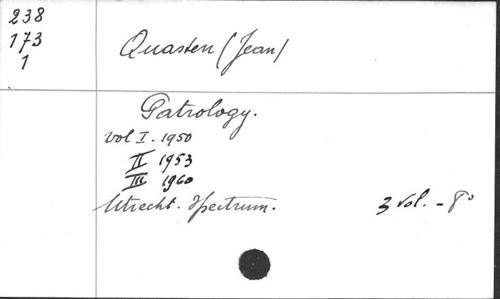 238
173
1
Quasten (Jean)
Patrology.
Vol I. 1950
II 1953
III 1960
Utrecht. Spectrum.
3 vol. - 8°